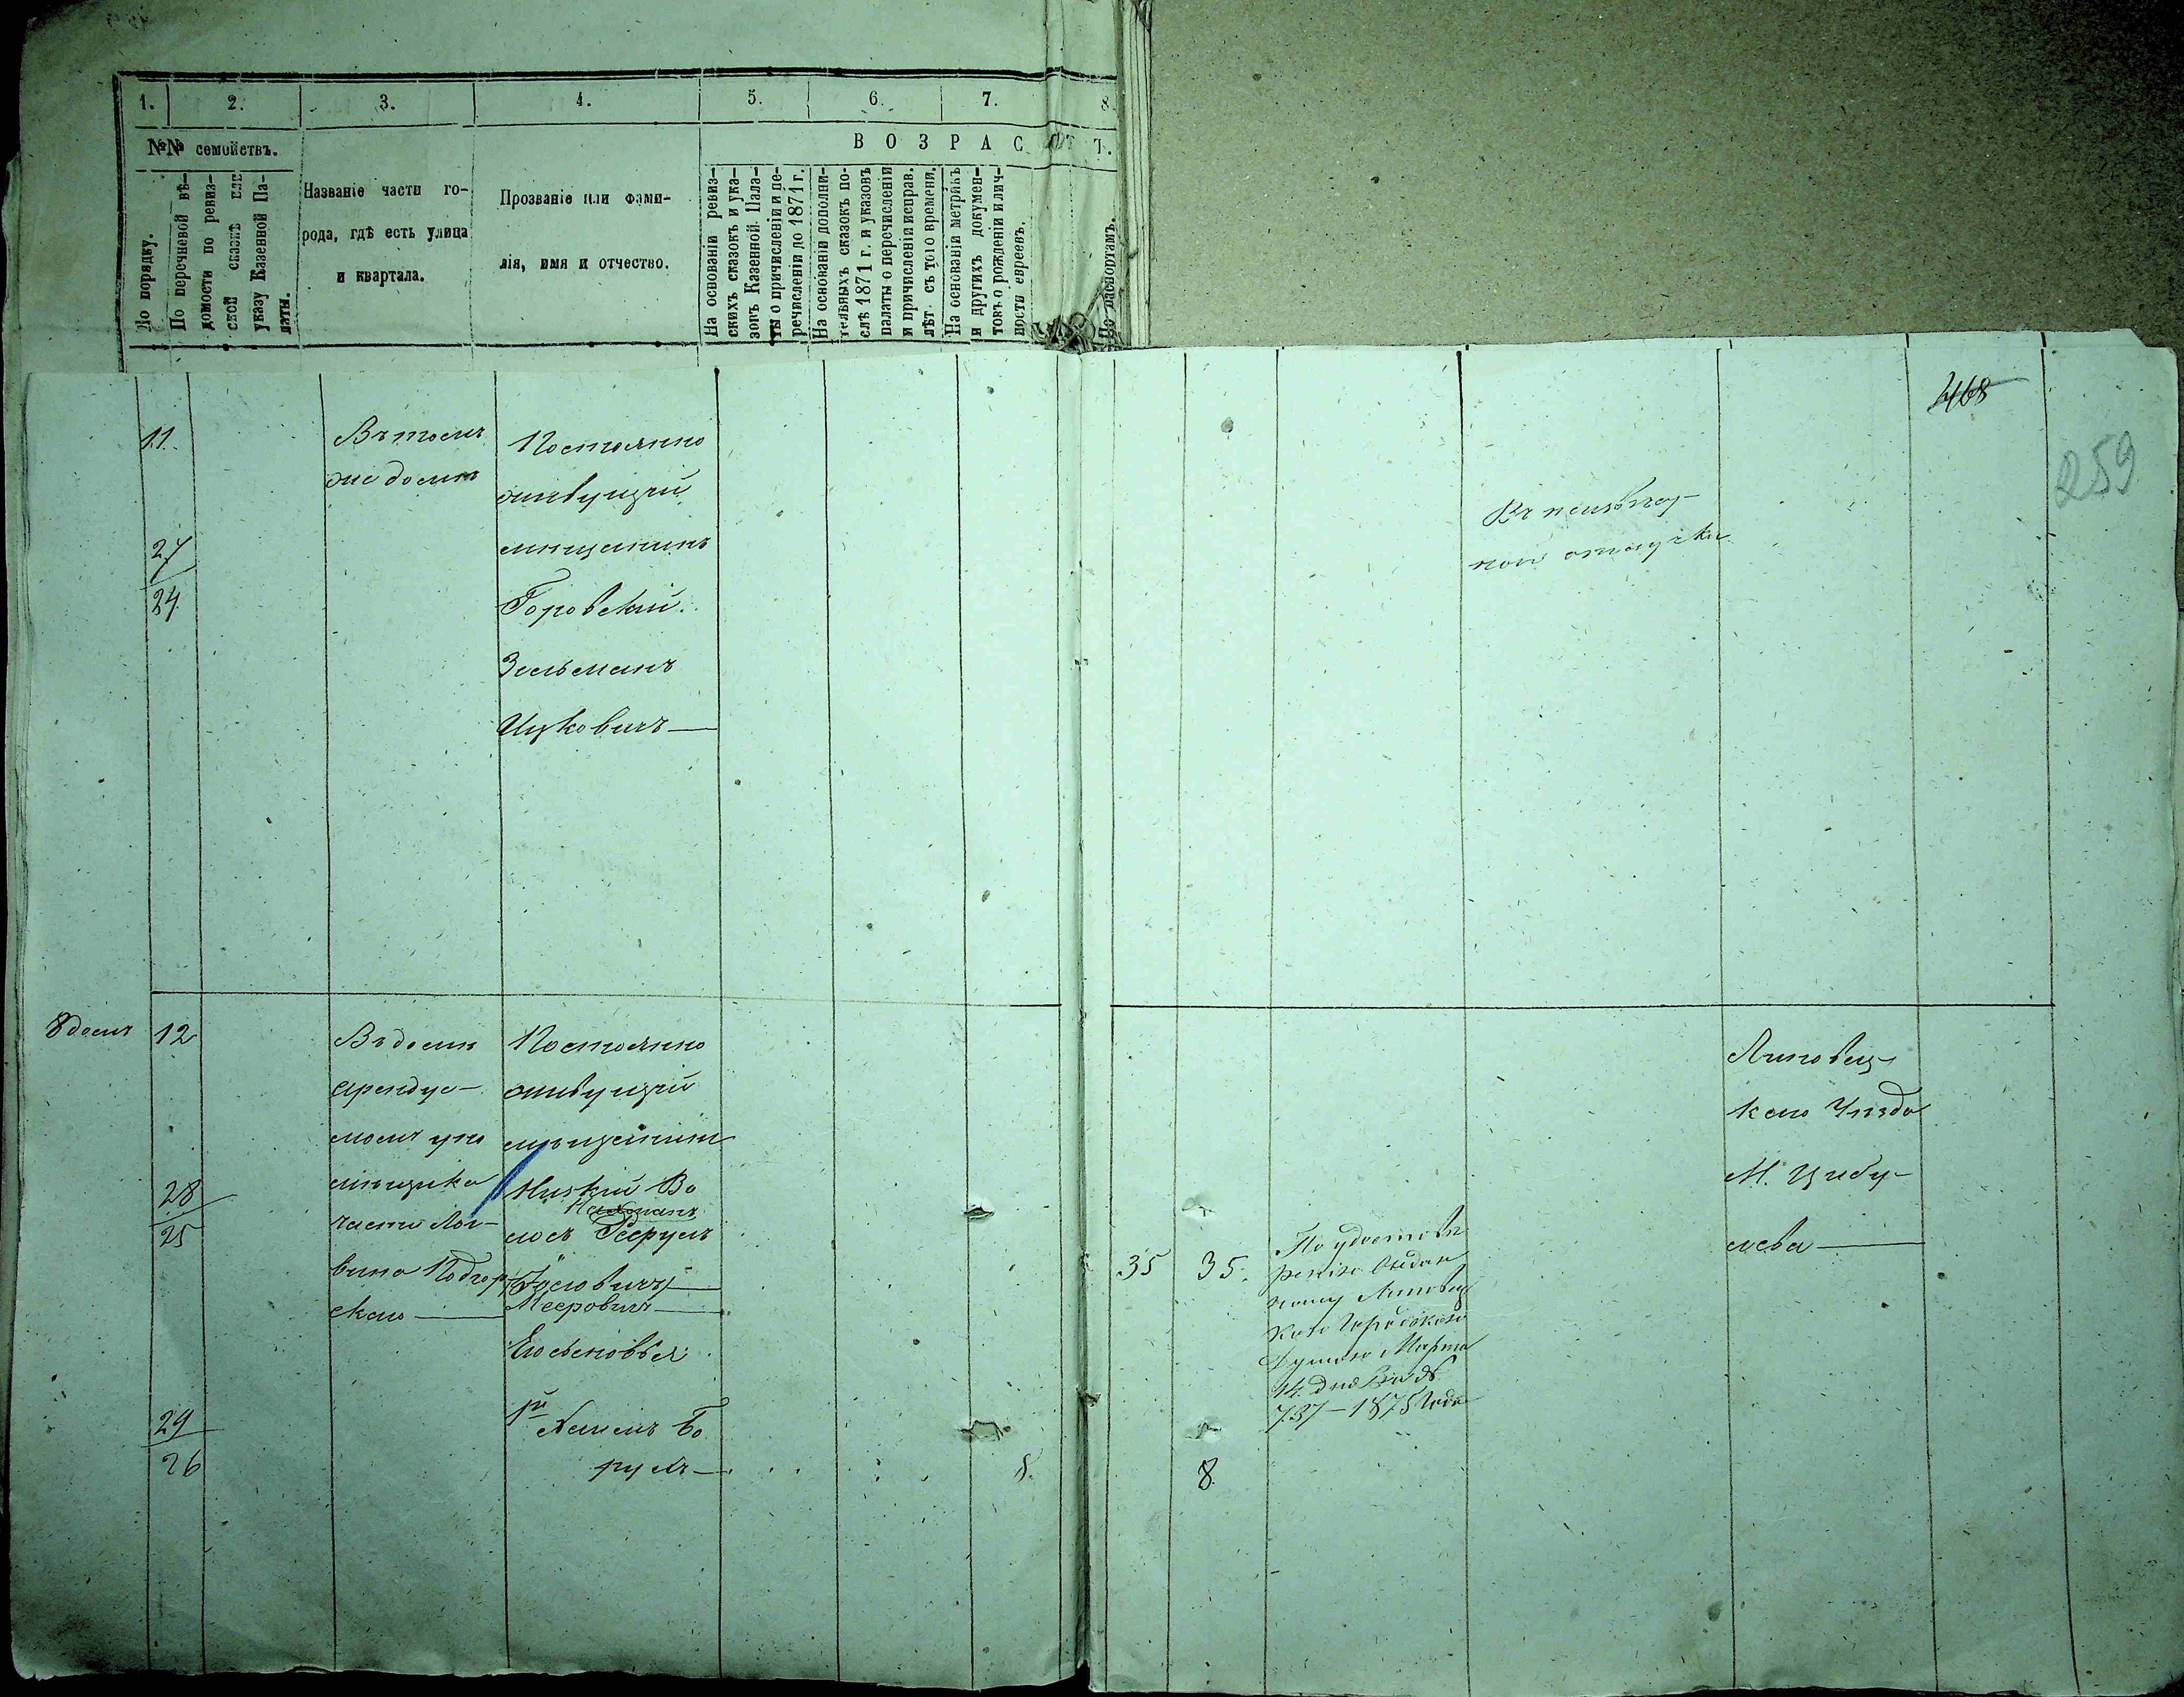 1.
2.
3.
4.
5.
6.
7.
8.
№№ семействъ.
ВОЗРАСТ
Т.
По порядку.
По перечневой вѣ-
домости по ревиз-
ской сказкѣ или
указу Казенной Па-
латы.
Названіе части го-
рода, гдѣ есть улица
и квартала.
Прозваніе или фами-
лія, имя и отчество.
На основаніи ревиз-
скихъ сказокъ и ука-
зовъ Казенной Пала-
ты о причисленіи и пе-
речисленіи до 1871 г.
На основаніи дополни-
тельныхъ сказокъ по-
слѣ 1871 г. и указовъ
палаты о перечисленіи
и причисленіи исправ.
лѣт съ того времени.
На основаніи метрикъ
и другихъ докумен-
товъ о рожденіи и лич-
ности евреевъ.
По паспортамъ.
468
259
11.
Въ томъ
же доми
Постоянно
живущій
мищанинъ
Горовскій.
Зельманъ
Ицковичъ
27
24
Въ неизвѣст-
ной отлучки
8 домъ
12
Въ доми
арендуе-
момъ у по
мѣщика
части Лог-
вина Подгор
скаго
Постоянно
живущій
мѣщанинъ
28
25
Нахманъ
Мееровичъ
35
35.
По удостовѣ
ренію выдан
ному Липовец
кою Городскою
Думою Марта
14 дня за №
737 - 1875 года
Липовец-
каго Уѣзда
М. Цибу-
лева
29
26
рухъ
8.
8.